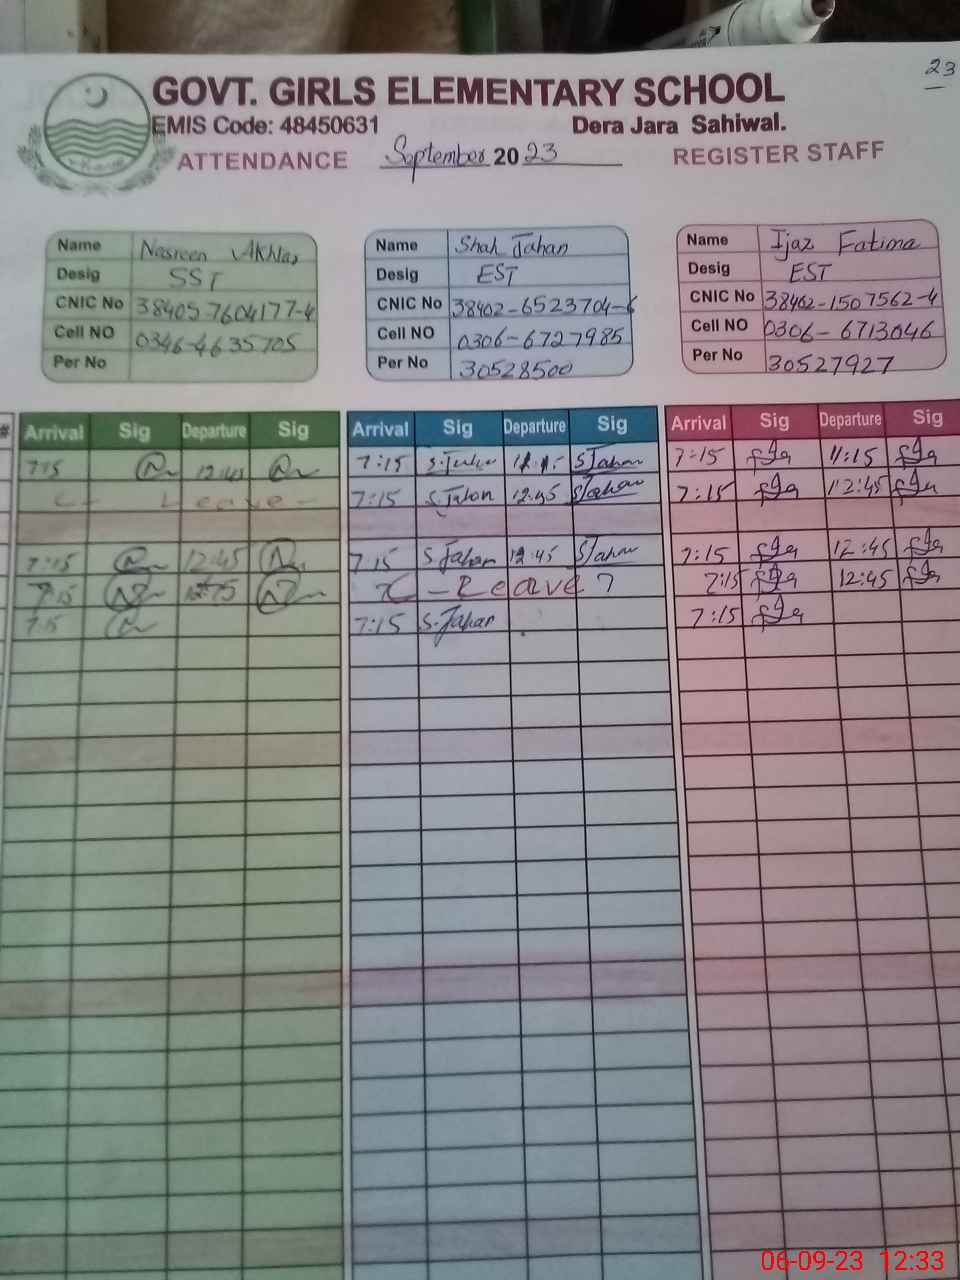 23
GOVT. GIRLS ELEMENTARY SCHOOL
EMIS Code: 48450631 Dera Jara Sahiwal.
ATTENDANCE September 2023 REGISTER STAFF
Name Nasreen Akhtar
Desig SST
CNIC No 38405-7604177-4
Cell NO 0346-4635705
Per No
Name Shah Jahan
Desig EST
CNIC No 38402-6523704-6
Cell NO 0306-6727985
Per No 30528500
Name Ijaz Fatima
Desig EST
CNIC No 38402-1507562-4
Cell NO 0306-6713046
Per No 30527927
# Arrival Sig Departure Sig Arrival Sig Departure Sig Arrival Sig Departure Sig
7:15 12:45 7:15 S.Jahan S Jahan 7:15 11:15
Leave 7:15 S.Jahan 12:45 S Jahan 7:15 12:45
7:15 12:45 7:15 S Jahan 12:45 S Jahan 7:15 12:45
7:15 Leave 7:15 12:45
7:15 7:15 S.Jahan 7:15
06-09-23 12:33